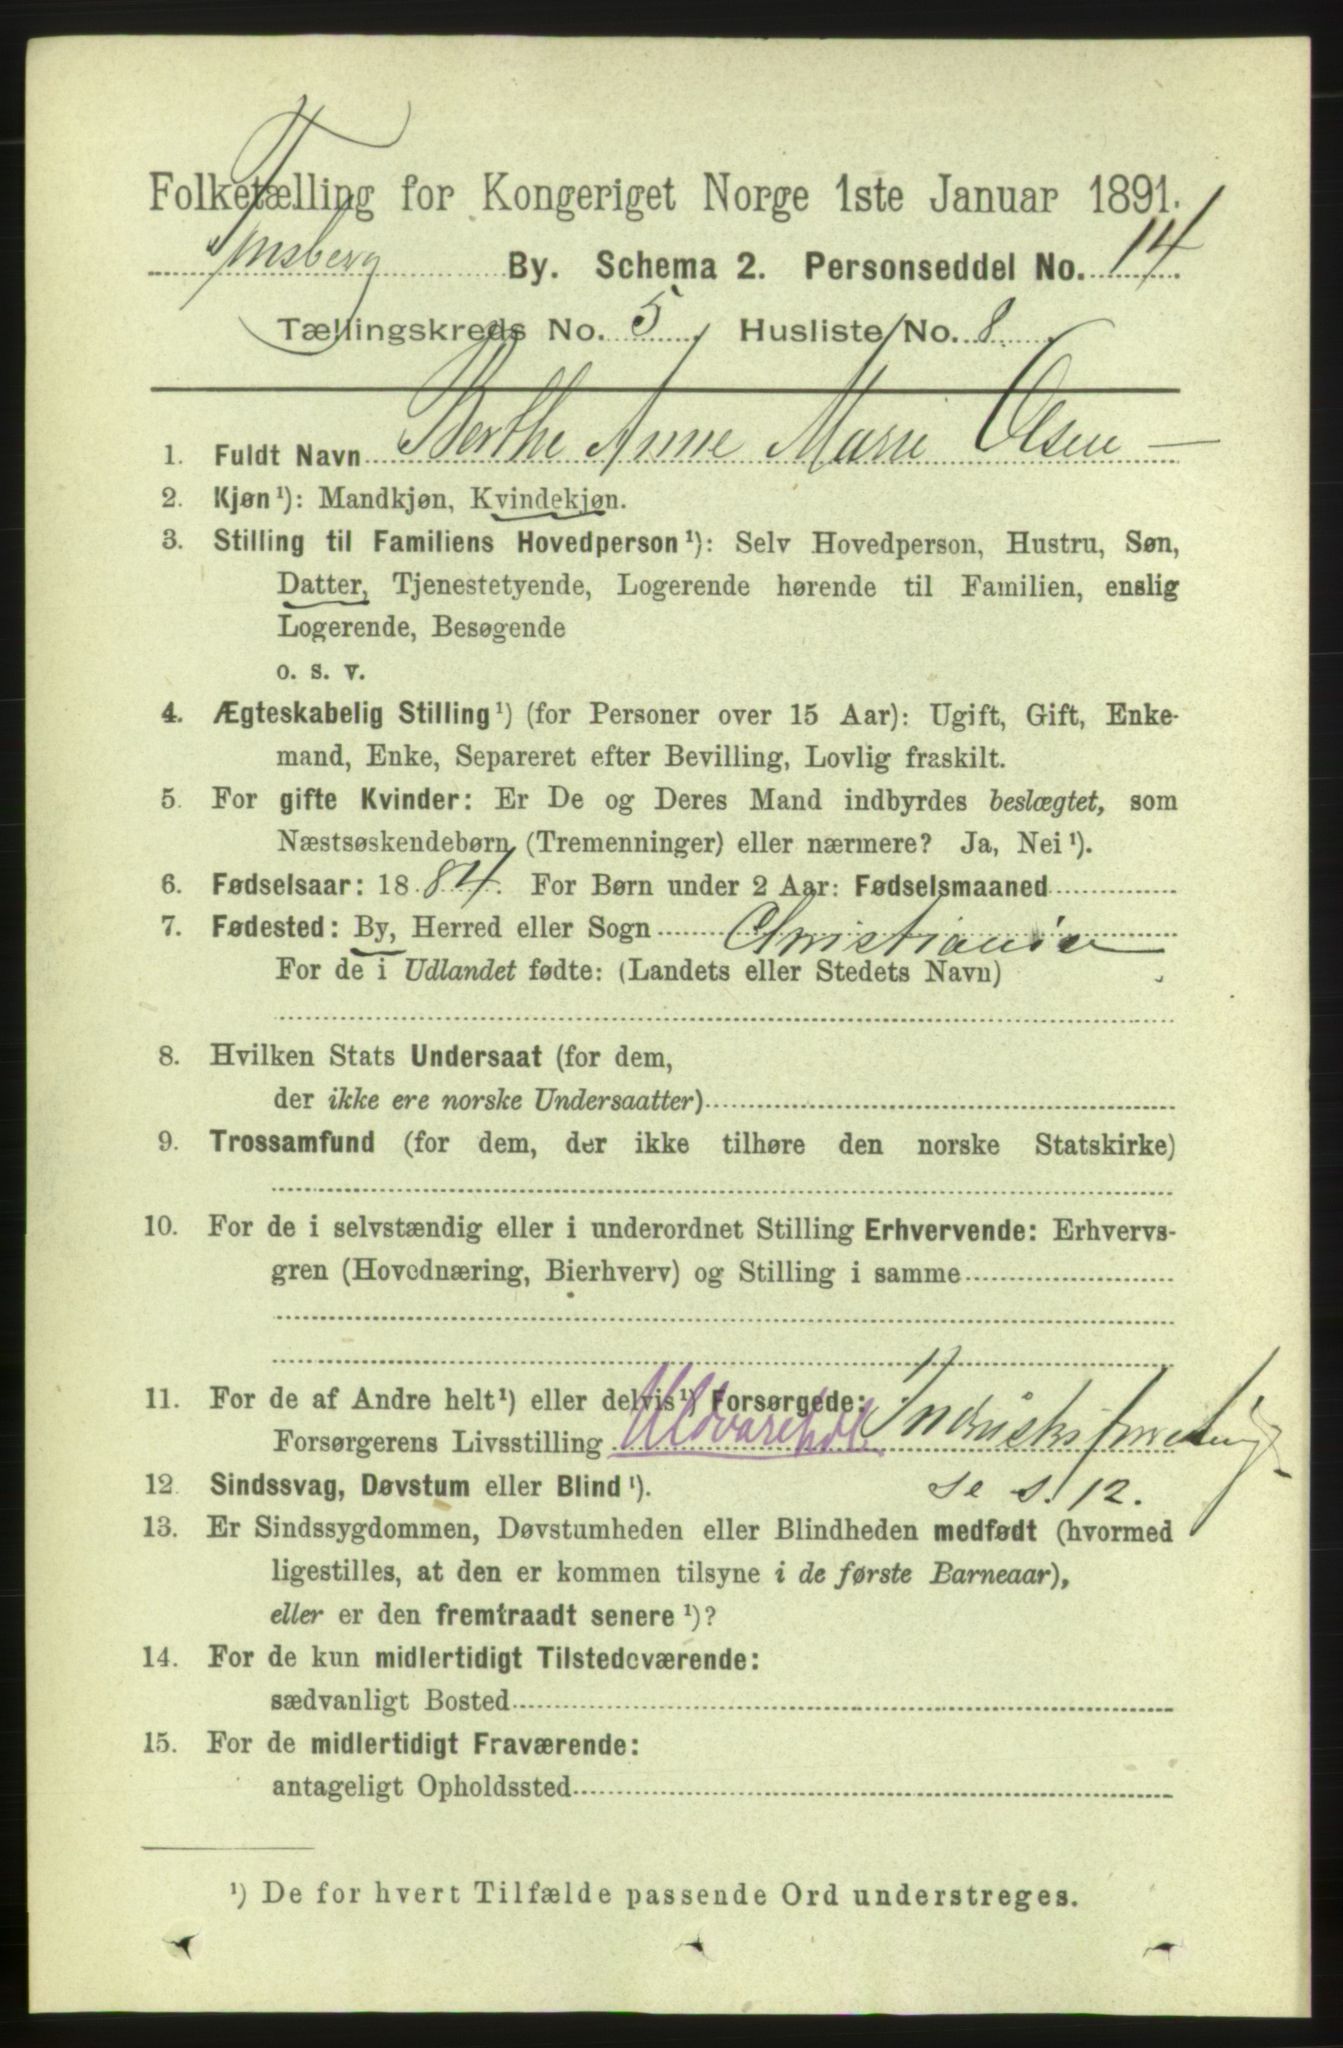 Folketælling for Kongeriget Norge 1ste Januar 1891.
Tønsberg By. Schema 2. Personseddel No. 14
Tællingskreds No. 5, Husliste No. 8.
1. Fuldt Navn Berthe Anne Marie Olsen
2. Kjøn¹): Mandkjøn, Kvindekjøn.
3. Stilling til Familiens Hovedperson¹): Selv Hovedperson, Hustru, Søn,
Datter, Tjenestetyende, Logerende hørende til Familien, enslig
Logerende, Besøgende
o. s. v.
4. Ægteskabelig Stilling¹) (for Personer over 15 Aar): Ugift, Gift, Enke-
mand, Enke, Separeret efter Bevilling, Lovlig fraskilt.
5. For gifte Kvinder: Er De og Deres Mand indbyrdes beslægtet, som
Næstsøskendebørn (Tremenninger) eller nærmere? Ja, Nei¹).
6. Fødselsaar: 1884. For Børn under 2 Aar: Fødselsmaaned
7. Fødested: By, Herred eller Sogn Christiania
For de i Udlandet fødte: (Landets eller Stedets Navn)
8. Hvilken Stats Undersaat (for dem,
der ikke ere norske Undersaatter)
9. Trossamfund (for dem, der ikke tilhøre den norske Statskirke)
10. For de i selvstændig eller i underordnet Stilling Erhvervende: Erhvervs-
gren (Hovednæring, Bierhverv) og Stilling i samme
11. For de af Andre helt¹) eller delvis¹) Forsørgede:
Forsørgerens Livsstilling
12. Sindssvag, Døvstum eller Blind¹). se s. 12.
13. Er Sindssygdommen, Døvstumheden eller Blindheden medfødt (hvormed
ligestilles, at den er kommen tilsyne i de første Barneaar),
eller er den fremtraadt senere¹)?
14. For de kun midlertidigt Tilstedeværende:
sædvanligt Bosted
15. For de midlertidigt Fraværende:
antageligt Opholdssted
¹) De for hvert Tilfælde passende Ord understreges.